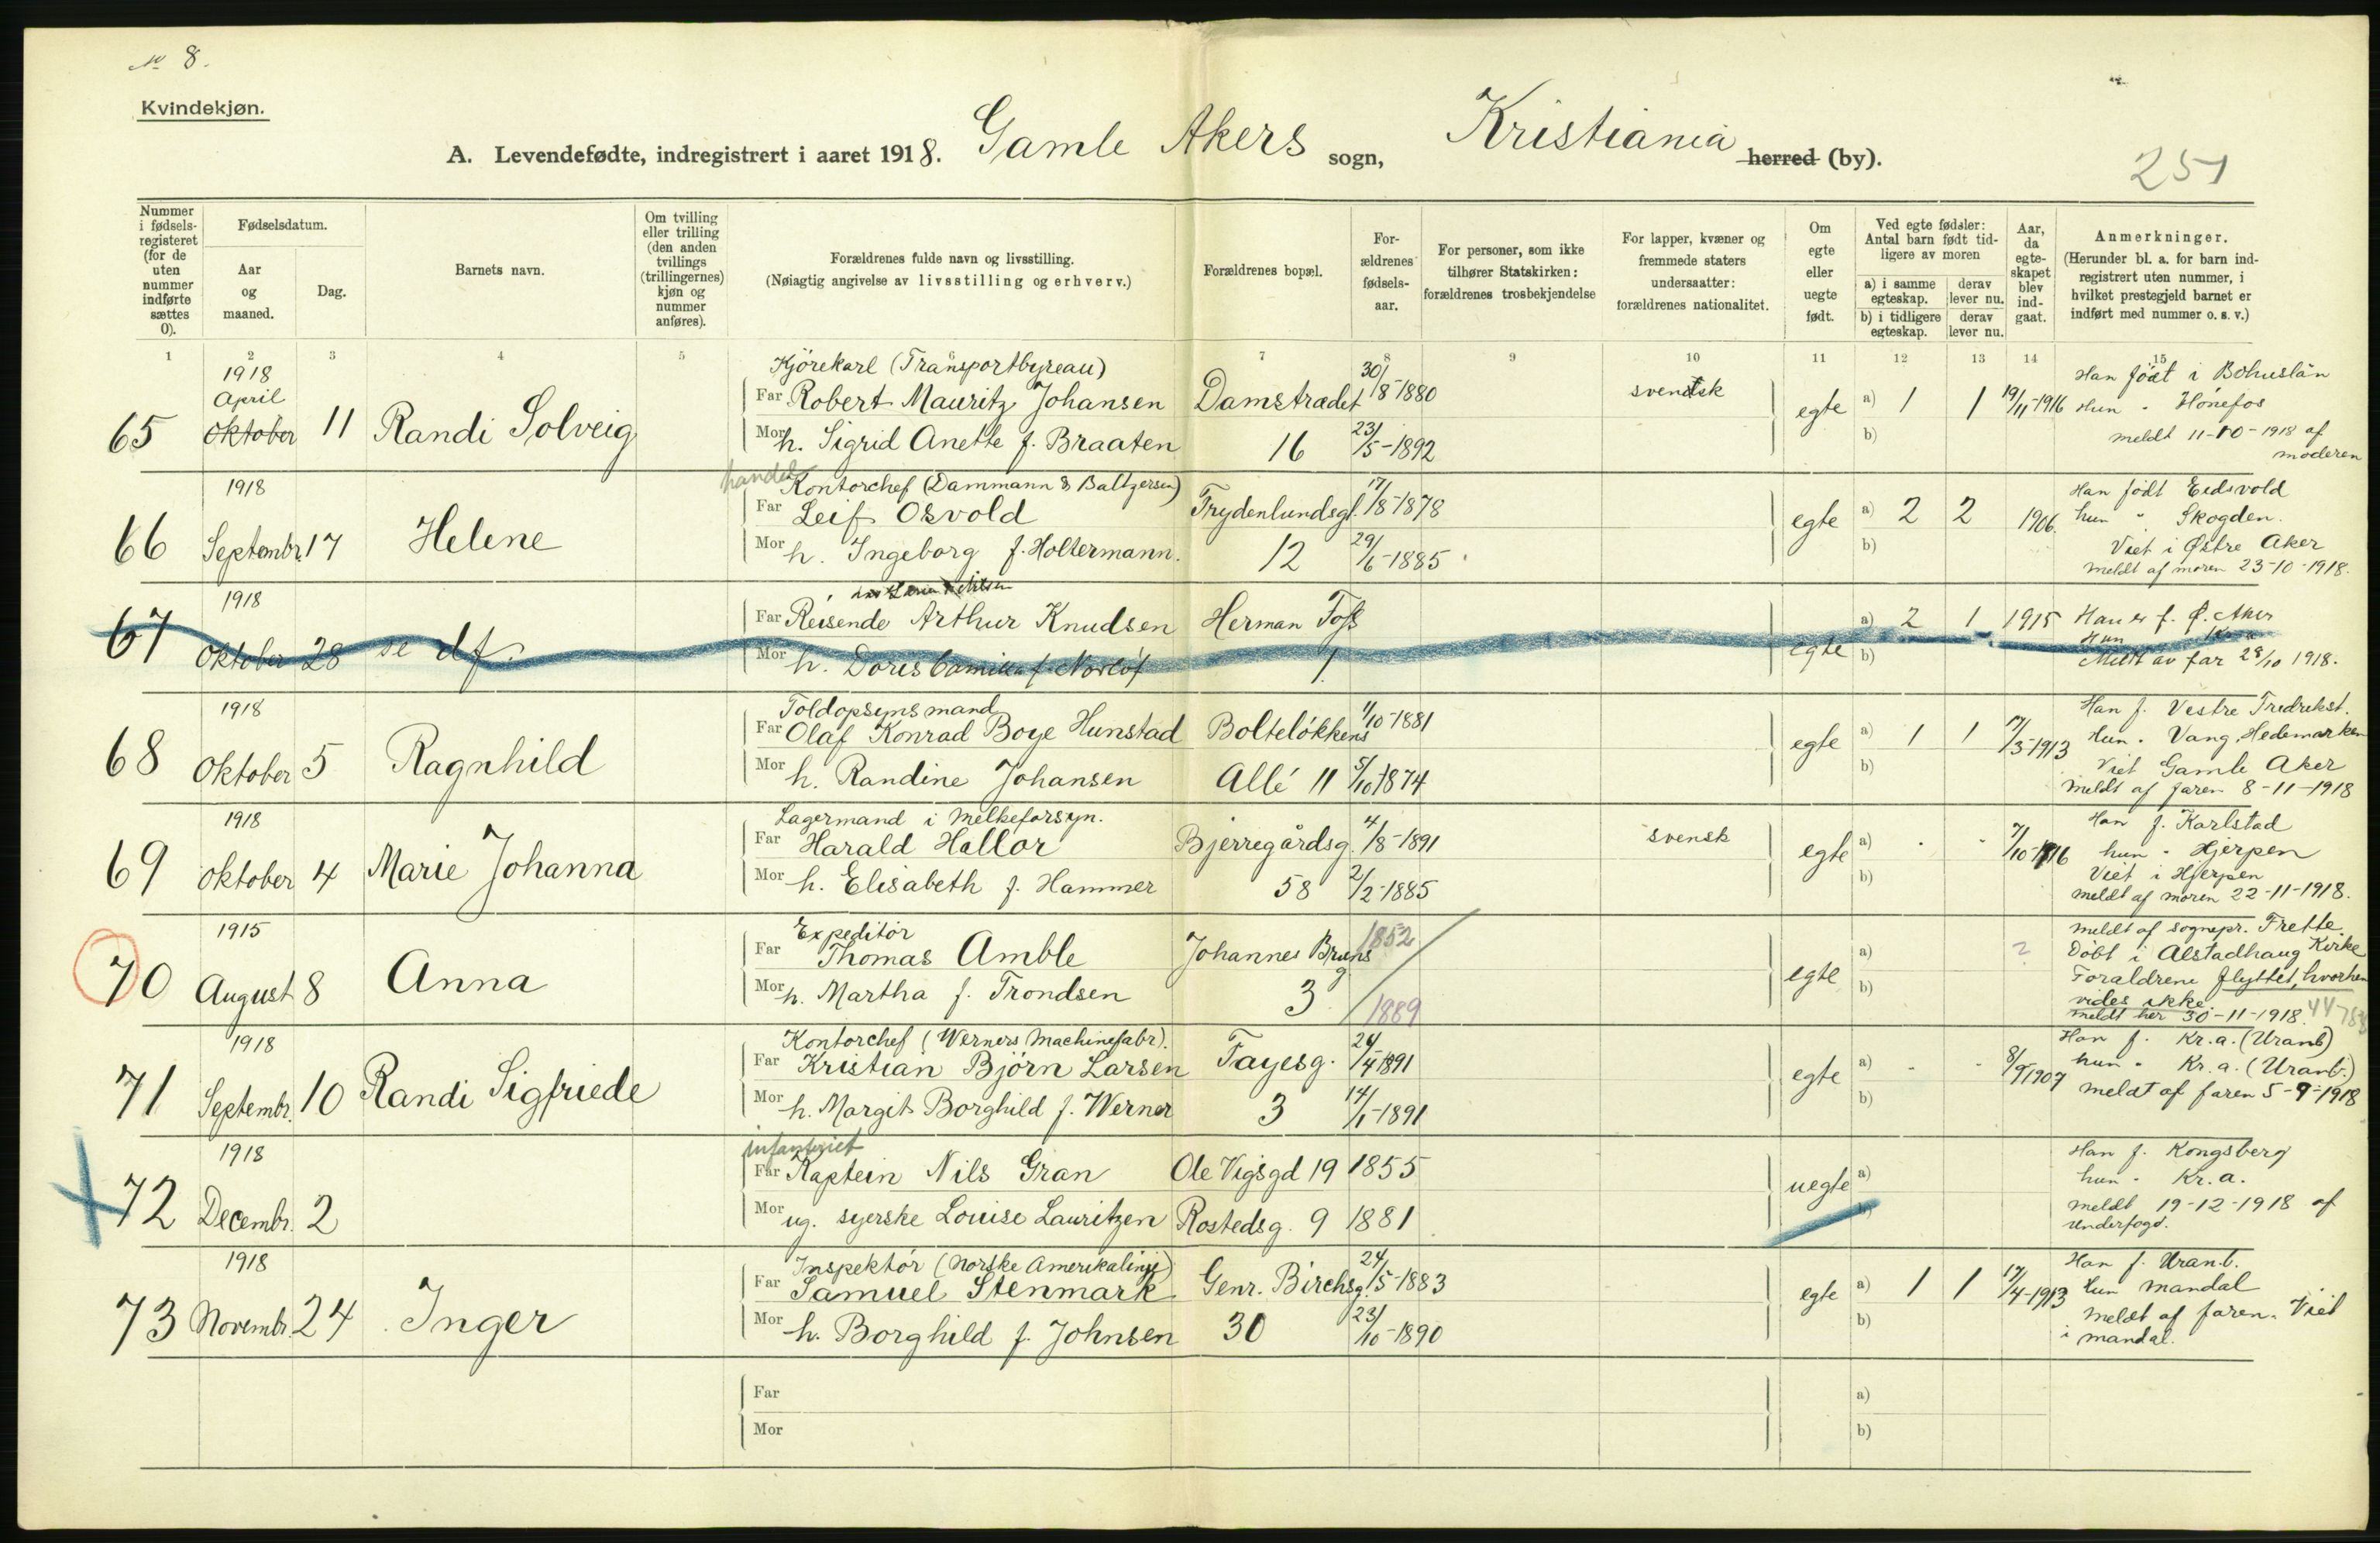 No 8.
Kvindekjøn.
A. Levendefødte, indregistrert i aaret 1918. Gamle Akers sogn, Kristiania herred (by).
251
Nummer i fødsels-registeret (for de uten nummer indførte sættes 0).
Fødselsdatum.
Aar og maaned.
Dag.
Barnets navn.
Om tvilling eller trilling (den anden tvillings (trillingernes) kjøn og nummer anføres).
Forældrenes fulde navn og livsstilling.
(Nøiagtig angivelse av livsstilling og erhverv.)
Forældrenes bopæl.
For-ældrenes fødsels-aar.
For personer, som ikke tilhører Statskirken: forældrenes trosbekjendelse
For lapper, kvæner og fremmede staters undersaatter: forældrenes nationalitet.
Om egte eller uegte født.
Ved egte fødsler: Antal barn født tid-ligere av moren
a) i samme egteskap.
derav lever nu.
b) i tidligere egteskap.
derav lever nu.
Aar, da egte-skapet blev ind-gaat.
Anmerkninger.
(Herunder bl. a. for barn ind-registrert uten nummer, i hvilket prestegjeld barnet er indført med nummer o. s. v.)
1 2 3 4 5 6 7 8 9 10 11 12 13 14 15
1918 Kjörekarl (Transportbyreau) 30/ Han födt i Bohuslän
April Far Robert Mauritz Johansen Damstrædet 8-1880 svensk a) 1 1 19/11-1916 Hun " Hönefos
65 Oktober 11 Randi Solveig egte
Mor h. Sigrid Anette f. Braaten 16 23/5-1892 b) meldt 11-10-1918 af
moderen
1918 handel Kontorchef (Dammann & Baltzersen) Han födt Eidsvold
Far Leif Osvold Frydenlundsg. 17/8-1878 a) 2 2 1906. hun " Skogden.
66 Septembr. 17 Helene egte
Mor h. Ingeborg f. Holtermann. 12 29/6-1885 b) Viet i Østre Aker
meldt af moren 23-10-1918.
1918
Far Reisende Arthur Knudsen Herman Foss a) 2 1 1915 Han er f. Ø. Aker
67 Oktober 28 se df. egte Hun
Mor h. Doris Camilla f. 1 b) Meldt av far 28/10 1918.
1918 Toldopsynsmand Han f. Vestre Fredrikst.
Far Olaf Konrad Boye Hunstad Bolteløkkens 1/10-1881 a) 1 1 /3-1913 Hun " Vang, Hedemarken
68 Oktober 5 Ragnhild egte
Mor h. Randine Johansen Allé 11 5/10-1874 b) Viet Gamle Aker
meldt af faren 8-11-1918
1918 Lagermand i Melkeforsyn. Han f. Karlstad
Far Harald Hallor Bjerregårdsg. 4/8-1891 svensk a) - - 7/10-1916 hun " Hjerpen
69 Oktober 4 Marie Johanna egte
Mor h. Elisabeth f. Hammer 58 2/2-1885 b) Viet i Hjerpen
meldt af moren 22-11-1918.
1915 Expeditör meldt af sognepr. Frette
Far Thomas Amble Johannes Bruns 1852 a) ? Döbt i Alstadhaug Kirke
70 August 8 Anna g egte Foraldrene flyttet, hvorhen
Mor h. Martha f. Trondsen 3 1889 b) vides ikke.
meldt her 30-11-1918.
1918 Kontorchef (Werners Machinefabr). Han f. Kr.a. (Uranb)
Far Kristian Björn Larsen Fayesg. /4 1891 a) - - 8/ 1907 hun " Kr.a. (Uranb.)
71 Septembr. 10 Randi Sigfriede egte
Mor h. Margit Borghild f. Werner 3 14/1-1891 b) meldt af faren 5-9-1918
1918 infanteriet Han f. Kongsberg
Far Kaptein Nils Gran Ole Vigsgd 19 1855 a) hun " Kr.a.
72 Decembr. 2 uegte
Mor ug. syerske Louise Lauritzen Rostedsg. 9 1881 meldt 19-12-1918 af
Underfogd.
1918 Inspektör (Norske Amerikalinje) 24/ Han f. Uranb.
Far Samuel Stenmark Genr. Birchsg. 5-1883 a) 1 1 /4-1913 Hun Mandal
73 Novembr. 24 Inger egte
Mor h. Borghild f. Johnsen 30 23/10-1890 b) meldt af faren. Viet
i Mandal.
Far a)
Mor b)